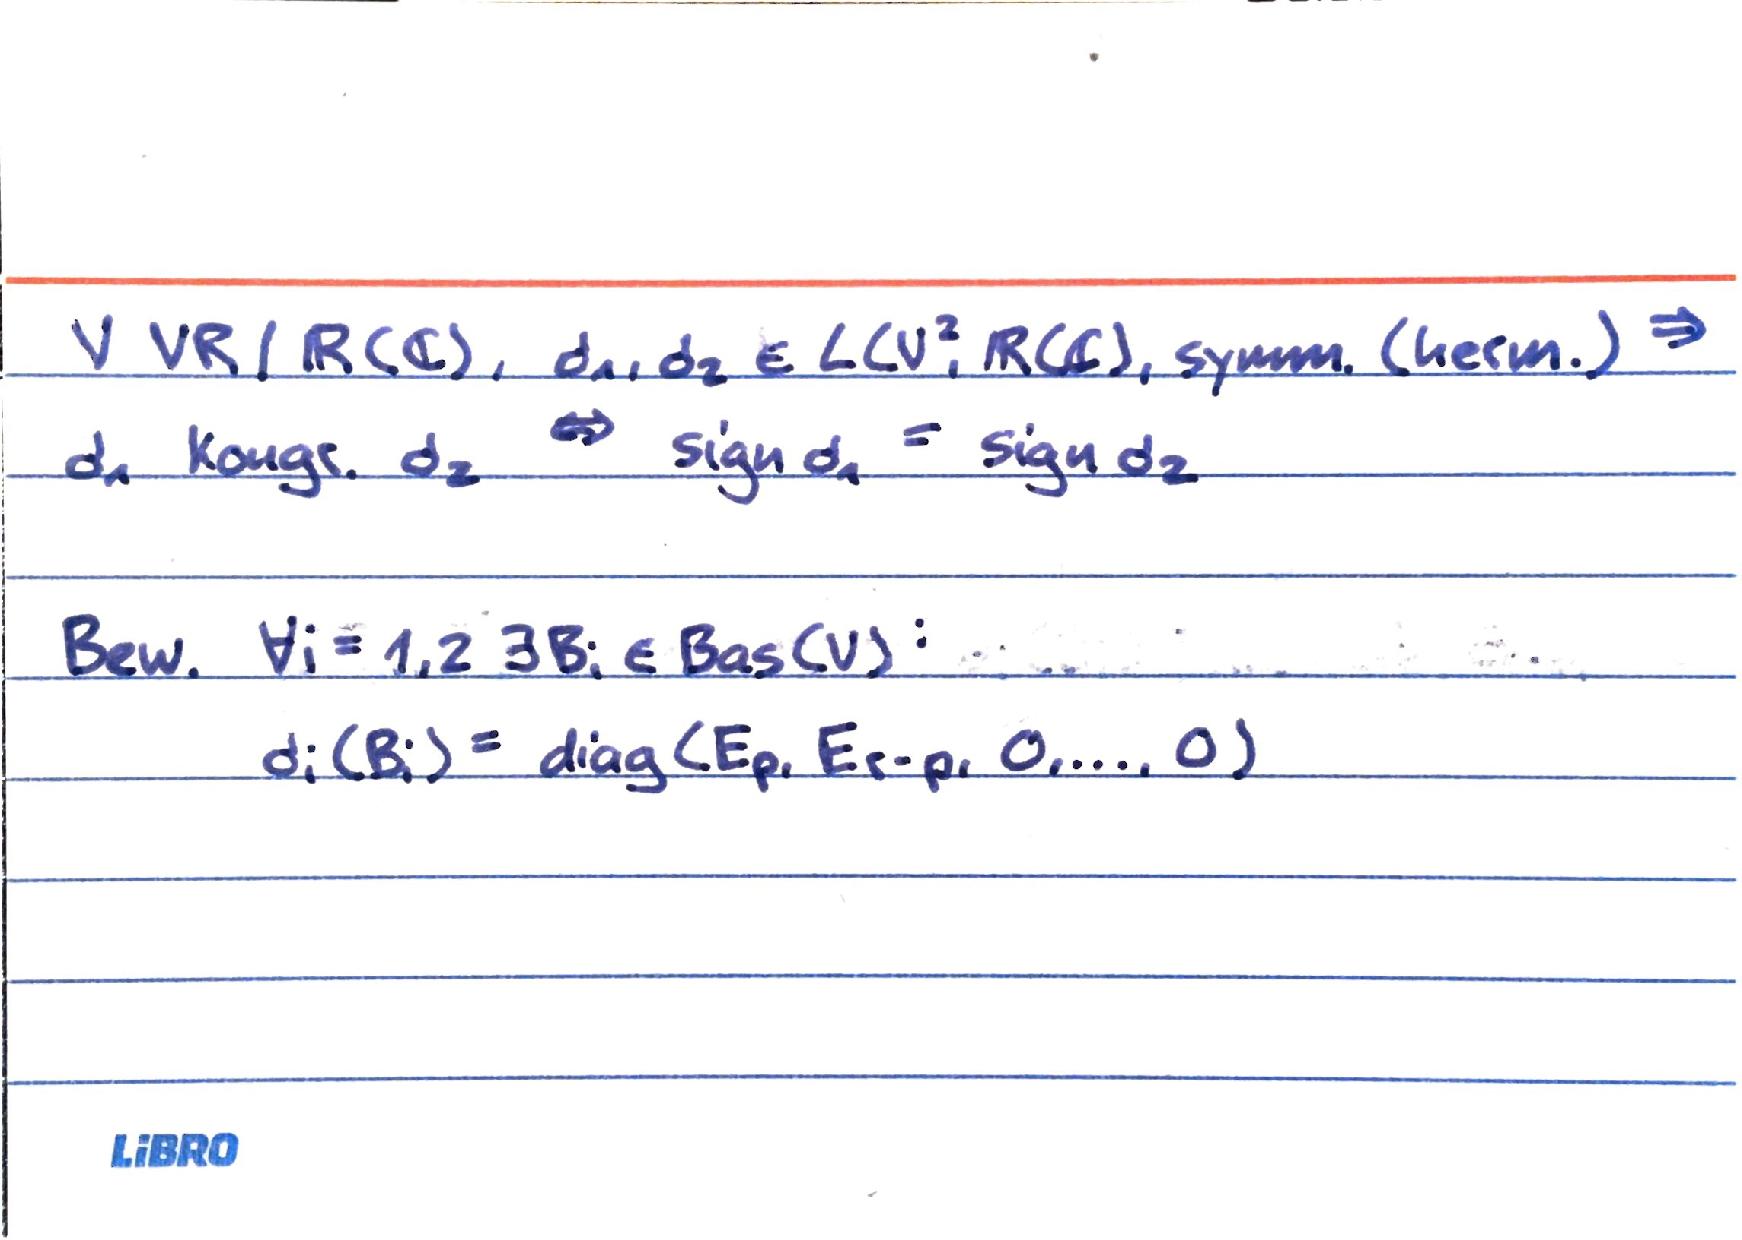 V VR / ℝ(ℂ), d₁, d₂ ∈ L(V², ℝ(ℂ), symm. (herm.) ⇒
d₁ Kongr. d₂ ⇔ sign d₁ = sign d₂
Bew. ∀i = 1,2 ∃Bᵢ ∈ Bas(V) :
dᵢ(Bᵢ) = diag(Eₚ, Eᵣ₋ₚ, 0,...., 0)
LiBRO